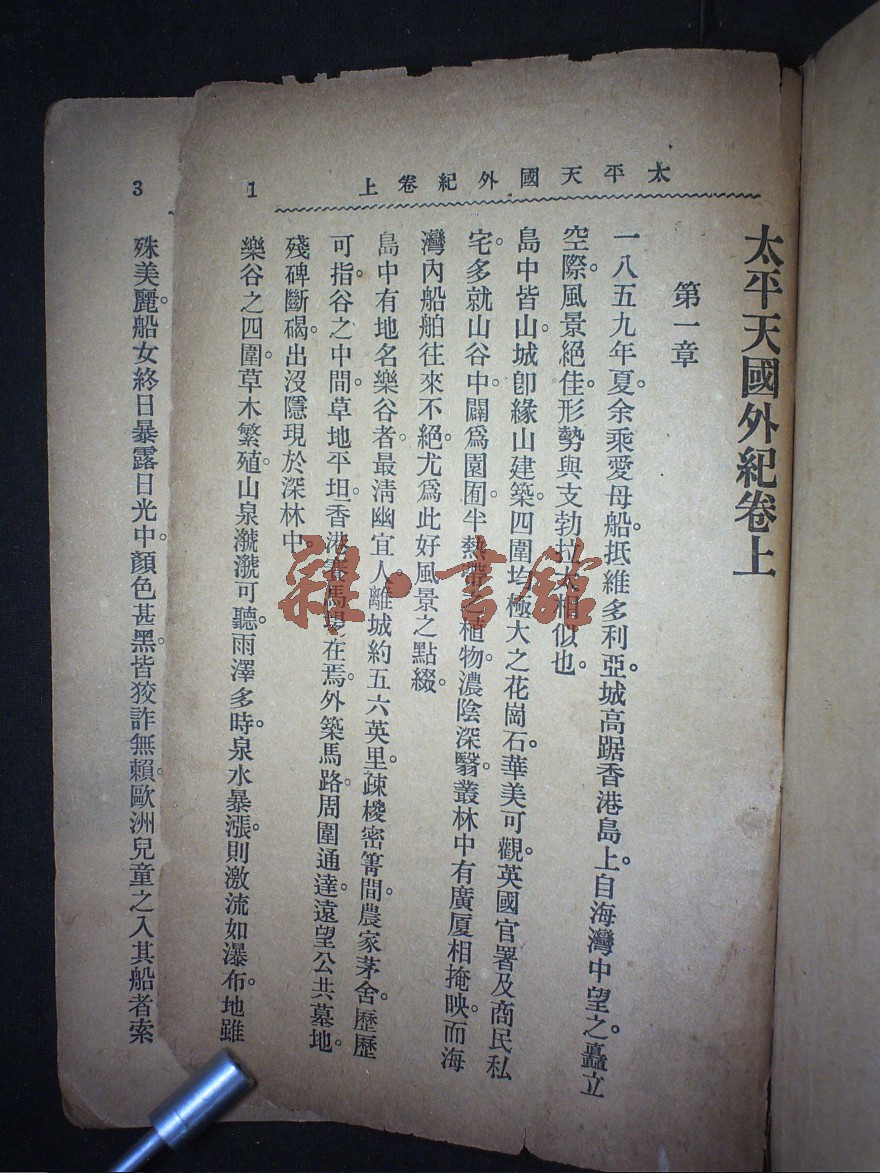 太平天國外紀卷上
1
太平天國外紀卷上
第一章
一八五九年夏。余乘愛母船。抵維多利亞。城高踞香港島上。自海灣中望之。矗立
空際。風景絕佳。形勢與支勃拉大相似也。
島中皆山。城卽緣山建築。四圍均極大之花崗石。華美可觀。英國官署及商民私
宅。多就山谷中。闢爲園囿。半熱帶之植物。濃陰深翳。叢林中有廣厦相掩映。而海
灣內船舶往來不絕。尤爲此好風景之點綴。
島中有地名樂谷者。最淸幽宜人。離城約五六英里。疎櫻密箐間。農家茅舍。歷歷
可指。谷之中間。草地平坦。香港賽馬場在焉。外築馬路。周圍通達。遠望公共墓地。
殘碑斷碣。出沒隱現於深林中。
樂谷之四圍。草木繁殖。山泉㶁㶁可聽。雨澤多時。泉水暴漲。則激流如瀑布。地雖
3
殊美麗。船女終日暴露日光中。顏色甚黑。皆狡詐無賴。歐洲兒童之入其船者索
雜·書館